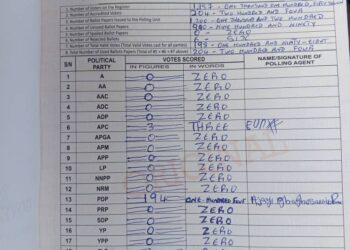 1. Number of Voters on the Register 1,157 - ONE THOUSAND, ONE HUNDRED, FIFTY SEVEN
2. Number of Accredited Voters 204 - TWO HUNDRED AND FOUR
3. Number of Ballot Papers Issued to the Polling Unit 1,200 - ONE THOUSAND AND TWO HUNDRED
4. Number of Unused Ballot Papers NINE HUNDRED AND NINETY
5. Number of Spoiled Ballot Papers 0 - ZERO
6. Number of Rejected Ballots 6 - SIX
7. Number of Total Valid Votes (Total Valid Votes cast for all parties) 198 - ONE HUNDRED AND NINETY-EIGHT
8. Total Number of Used Ballot Papers (Total of #5 + #6 + #7 above) 204 - TWO HUNDRED AND FOUR
SN POLITICAL PARTY VOTES SCORED NAME/SIGNATURE OF POLLING AGENT
IN FIGURES IN WORDS
1 A 0 ZERO
2 AA 0 ZERO
3 AAC 0 ZERO
4 ADC 0 ZERO
5 ADP 0 ZERO
6 APC 3 THREE
7 APGA 0 ZERO
8 APM 0 ZERO
9 APP 0 ZERO
10 LP 0 ZERO
11 NNPP 0 ZERO
12 NRM 0 ZERO
13 PDP 194 ONE HUNDRED
14 PRP 0 ZERO
15 SDP 0 ZERO
16 YP 0 ZERO
YPP 0 ZERO